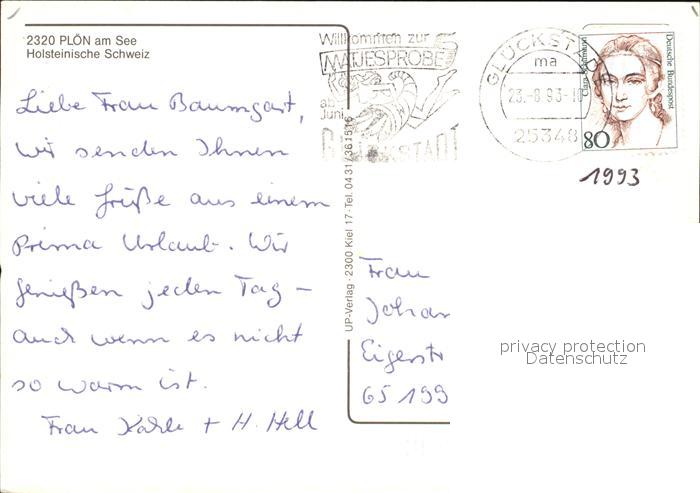 2320 PLÖN am See
Holsteinische Schweiz
Willkommen zur
MATJESPROBE
ab
Juni
GLÜCKSTADT
GLÜCKSTADT
ma
23.-8.93-
25348
Clara Schumann
Deutsche Bundespost
80
1993
Liebe Frau Baumgart,
wir senden Ihnen
viele Grüße aus einem
prima Urlaub. Wir
genießen jeden Tag –
auch wenn es nicht
so warm ist.
Frau + H. Hell
UP-Verlag · 2300 Kiel 17 · Tel. 0431/361516
Frau
Johan
Eigerstr
65199
privacy protection
Datenschutz